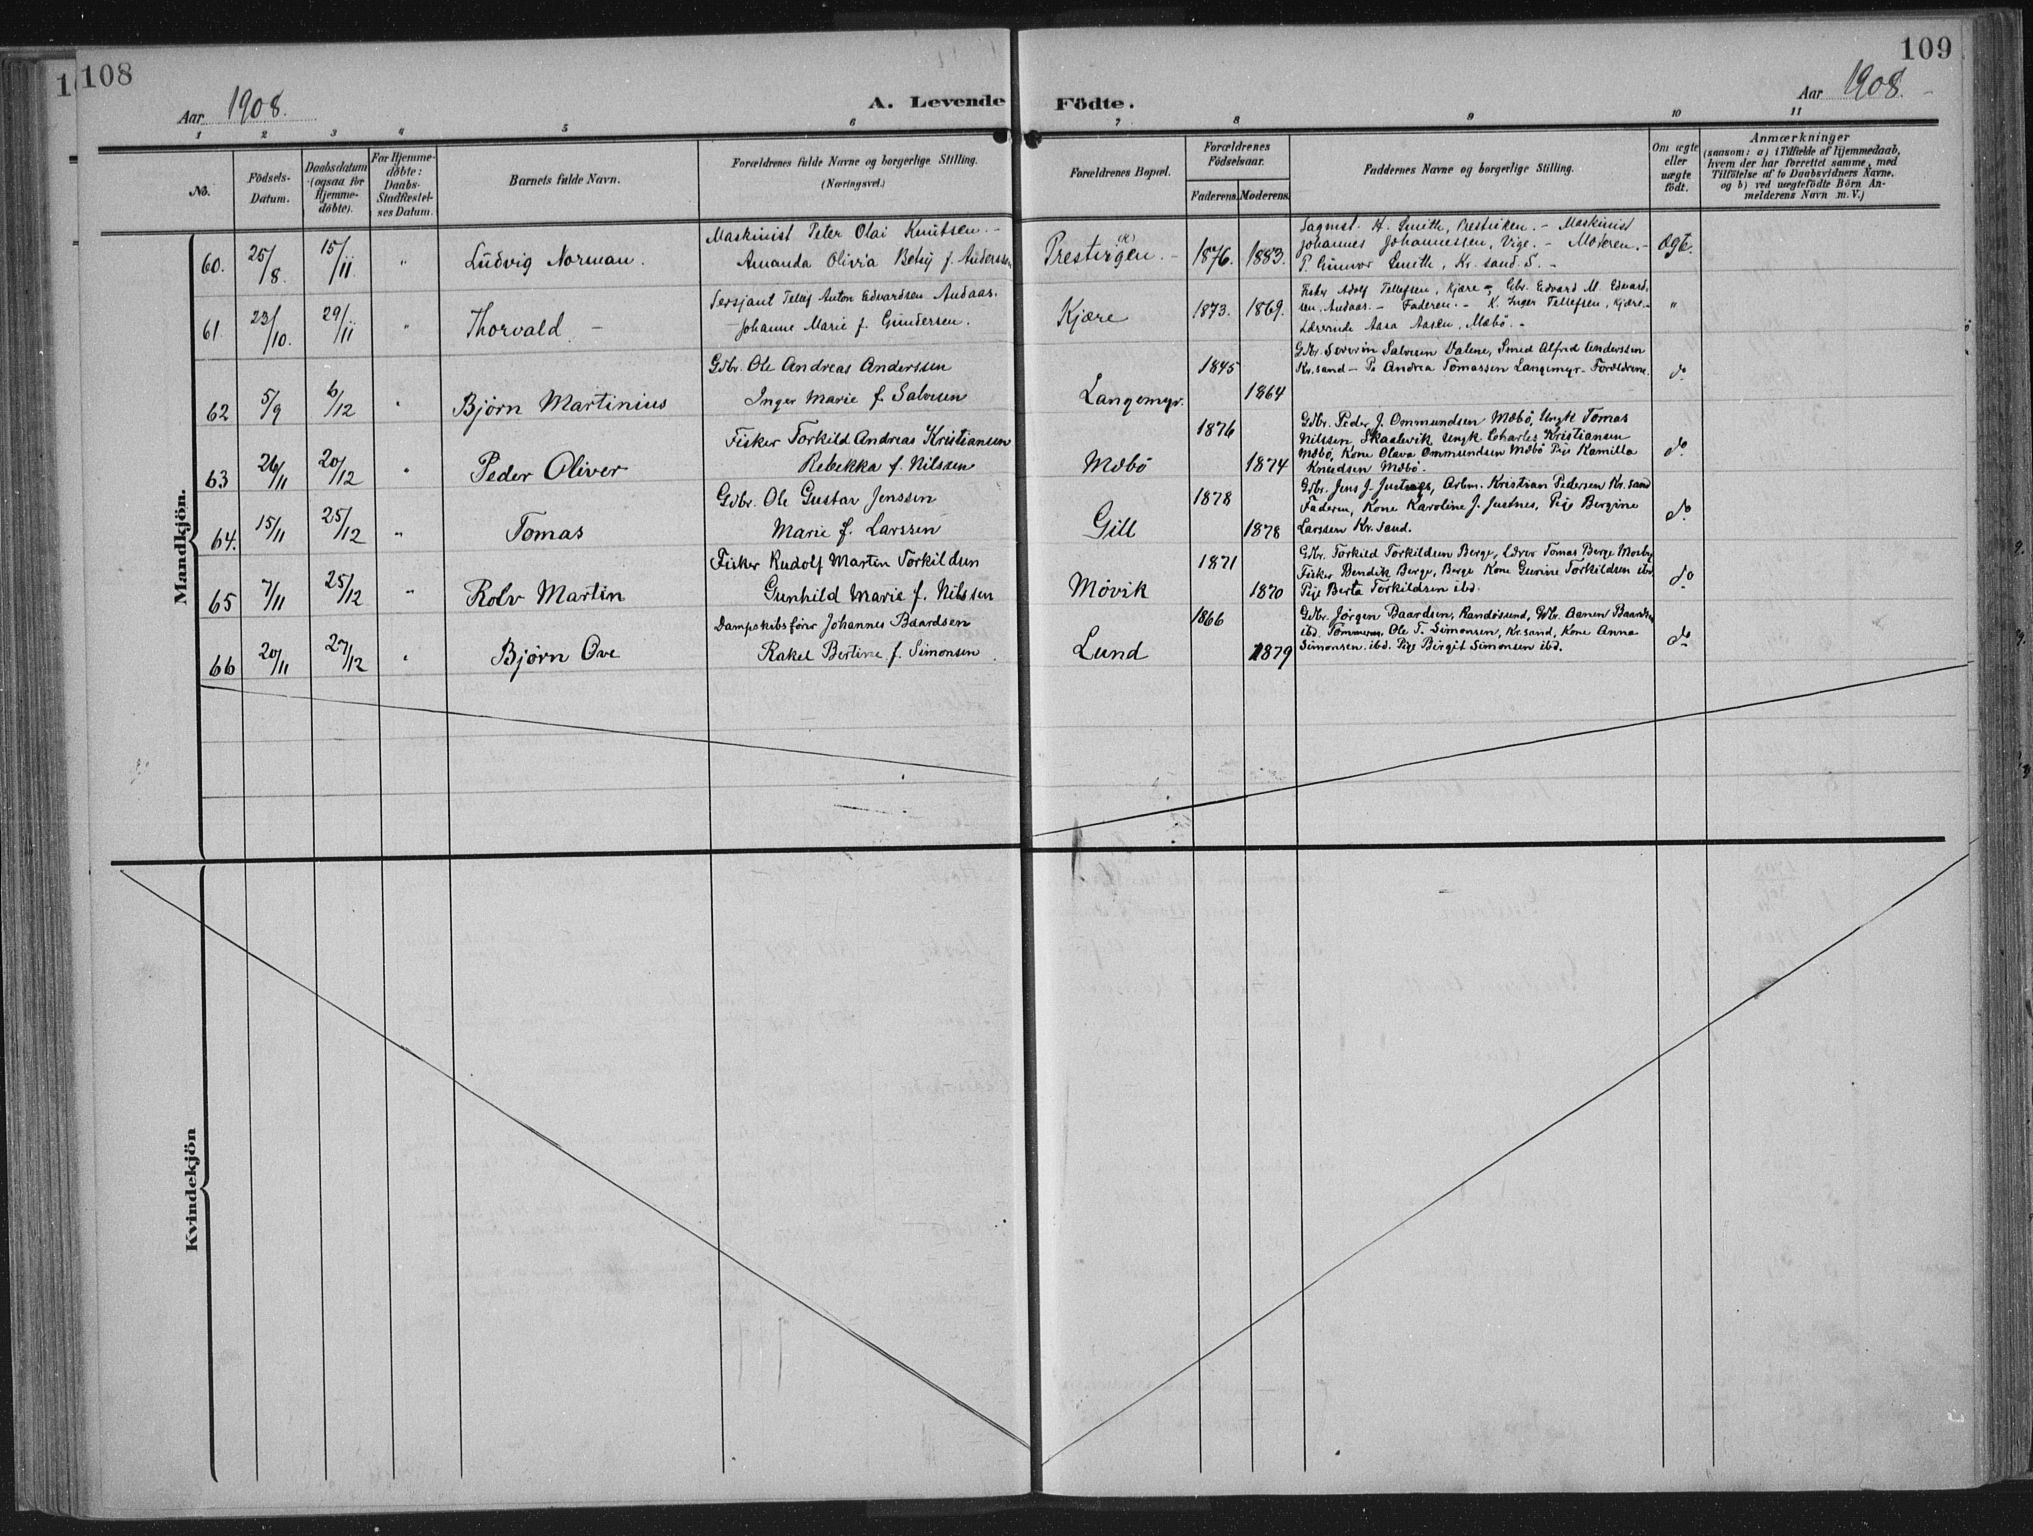 108
109
Aar 1908.
A. Levende Födte.
Aar 1908.
1 2 3 4 5 6 7 8 9 10 11
No.
Födsels-
Datum.
Daabsdatum
(ogsaa for
Hjemme-
døbte).
For Hjemme-
døbte:
Daabs-
Stadfæstel-
ses Datum.
Barnets fulde Navn.
Forældrenes fulde Navne og borgerlige Stilling.
(Næringsvei.)
Forældrenes Bopæl.
Forældrenes
Födselsaar.
Faderens. Moderens.
Faddernes Navne og borgerlige Stilling.
Om ægte
eller
uægte
født.
Anmærkninger
(saasom: a) i Tilfælde af Hjemmedaab,
hvem der har forrettet samme, med
Tilföielse af to Daabsvidners Navne.
og b) ved uægtefödte Börn An-
melderens Navn m. V.)
Mandkjön.
60. 25/8. 15/11. " Ludvig Norman.
Maskinist Peter Olai Knutsen. -
Amanda Olivia Betsy f. Anderssen
Prestvigen. - 1876. 1883.
Sagmst. H. Smith, - Maskinist
Johannes Johannessen, Vige. - Moderen. -
P. Gunvor Smith, Kr.sand S. -
Ægte.
61. 23/10. 29/11 " Thorvald -
Sersjant Tellef Anton Edvardsen Andaas.
Johanne Marie f. Gundersen.
Kjære 1873. 1869.
Fisker Adolf Tellefsen, Kjære -, Gbr. Edvard M. Edvard-
sen Andaas. - Faderen. - K. Inger Tellefsen, Kjære. -
Lærerinde Aasa Aasen, Mæbø. -
"
62 5/9 6/12 " Bjørn Martinius
Gdbr. Ole Andreas Anderssen
Inger Marie f. Salvesen
Langemyr. 1845 1864
Gdbr. Severin Salvesen Dalene, Smed Alfred Anderssen
Kr.sand - Pe Andrea Tomassen Langemyr - Forældrene.
do
63 26/11 20/12 " Peder Oliver
Fisker Torkild Andreas Kristiansen
Rebekka f. Nilssen
Mæbø 1876 1874
Gdbr. Peder J. Ommundsen Mæbø, Ungk Tomas
Nilssen, Skaalevik Ungk. Charles Kristiansen
Mæbø, Kone Olava Ommundsen Mæbø Pige Kamilla
Knudsen Mæbø.
do
64. 15/11 25/12 " Tomas
Gdbr. Ole Gustav Jenssen
Marie f. Larssen
Gill 1878 1878
Gdbr. Jens J. Justnes, Arbm. Kristian Pedersen Kr.sand
Faderen, Kone Karoline J. Justnes, Pige Bergine
Larssen Kr.sand.
do
65 7/11 25/12 " Rolv Martin
Fisker Rudolf Martin Torkildsen
Gunhild Marie f. Nilssen
Møvik 1871 1870
Gdbr. Torkild Torkildsen Berge, Lærer Tomas Berge Mosby
Fisker Bendik Berge, Berge Kone Gurine Torkildsen ibd.
Pige Berta Torkildsen ibd.
do
66 20/11 27/12 " Bjørn Ove
Dampskibsfører Johannes Baardsen
Rakel Bertine f. Simonsen
Lund 1866 1879
Gdbr. Jørgen Baardsen, Randøsund, Gdbr. Aanen Baardsen
ibd. Tømmerm. Ole T. Simonsen, Kr.sand, Kone Anna
Simonsen ibd. Pige Birgit Simonsen ibd.
do
Kvindekjön